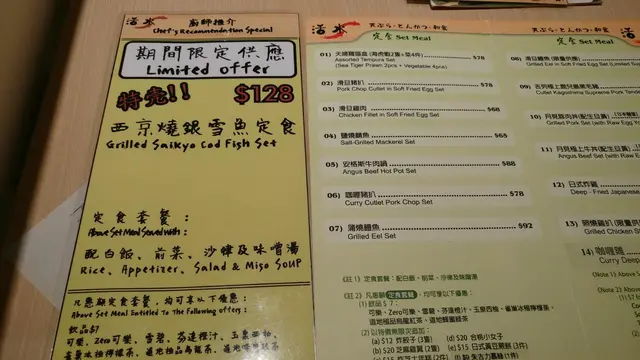 廚師推介
Chef's Recommendation Special
期間限定供應
Limited offer
特売!! $128
西京燒銀雪魚定食
Grilled Saikyo Cod Fish Set
定食套餐：
Above Set Meal Served with :
配白飯、前菜、沙律及味噌湯
Rice、Appetizer、Salad & Miso Soup
凡惠顧定食套餐，均可享以下優惠：
Above Set Meal Entitled To The Following offers :
飲品$7
可樂、Zero可樂、雪碧、芬達橙汁、
天ぷら・とんかつ・和食
定食 Set Meal
01) 天婦羅盛盒 (海虎蝦2隻+菜4件) $78
Assorted Tempura Set
(Sea Tiger Prawn 2pcs + Vegetable 4pcs)
02) 滑豆豬扒 $78
Pork Chop Cutlet in Soft Fried Egg Set
03) 滑豆雞肉 $68
Chicken Fillet in Soft Fried Egg Set
04) 鹽燒鯖魚 $65
Salt-Grilled Mackerel Set
05) 安格斯牛肉鍋 $88
Angus Beef Hot Pot Set
06) 咖喱豬扒 $78
Curry Cutlet Pork Chop Set
07) 蒲燒鰻魚 $92
Grilled Eel Set
(註 1) 定食套餐：配白飯、前菜、沙律及味噌湯
(註 2) 凡惠顧定食套餐，均可享以下優惠：
(1) 飲品 $ 7：
可樂、Zero可樂、雪碧、芬達橙汁、玉泉西柚、雀巢冰極檸檬茶、
道地極品烏龍紅茶、道地蜂蜜綠茶
(2) 以特價無限次追加：
(a) $12 炸餃子 (3隻) (d) $20 合桃小女子
(b) $20 芝麻雞翼 (2隻) (e) $15 日式黃豆煎餅 (3件)
天ぷら・とんかつ・和食
定食 Set Meal
08)
Grilled Eel in Soft Fried Egg Set (Limited
09)
Cutlet Kagoshima Supreme Pork Tende
10)
Grilled Pork Set (with Raw Egg Yo
11)
Angus Beef Set (with Raw
12) 日式炸雞
Deep - Fried Japanese
13)
Grilled Chicken S
14) 咖喱雞
Curry Deep
(Note 1) Above
(Note 2)